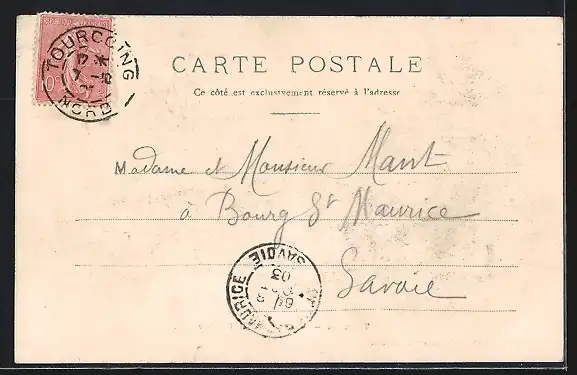 RÉPUBLIQUE FRANÇAISE
10
TOURCOING
NORD
CARTE POSTALE
Ce côté est exclusivement réservé à l'adresse
Madame et Monsieur
à Bourg St Maurice
Savoie
MAURICE
SAVOIE
03